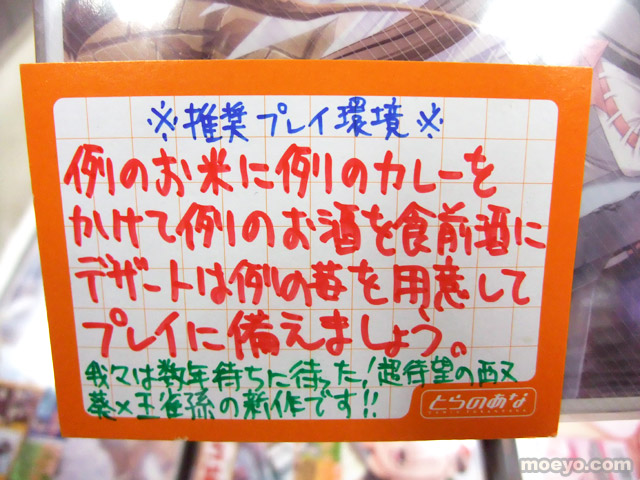 ※推奨プレイ環境※
例のお米に例のカレーを
かけて例のお酒を食前酒に
デザートは例の苺を用意して
プレイに備えましょう。
我々は数年待ちに待った!超待望の西又
葵×王雀孫の新作です!!
とらのあな
moeyo.com